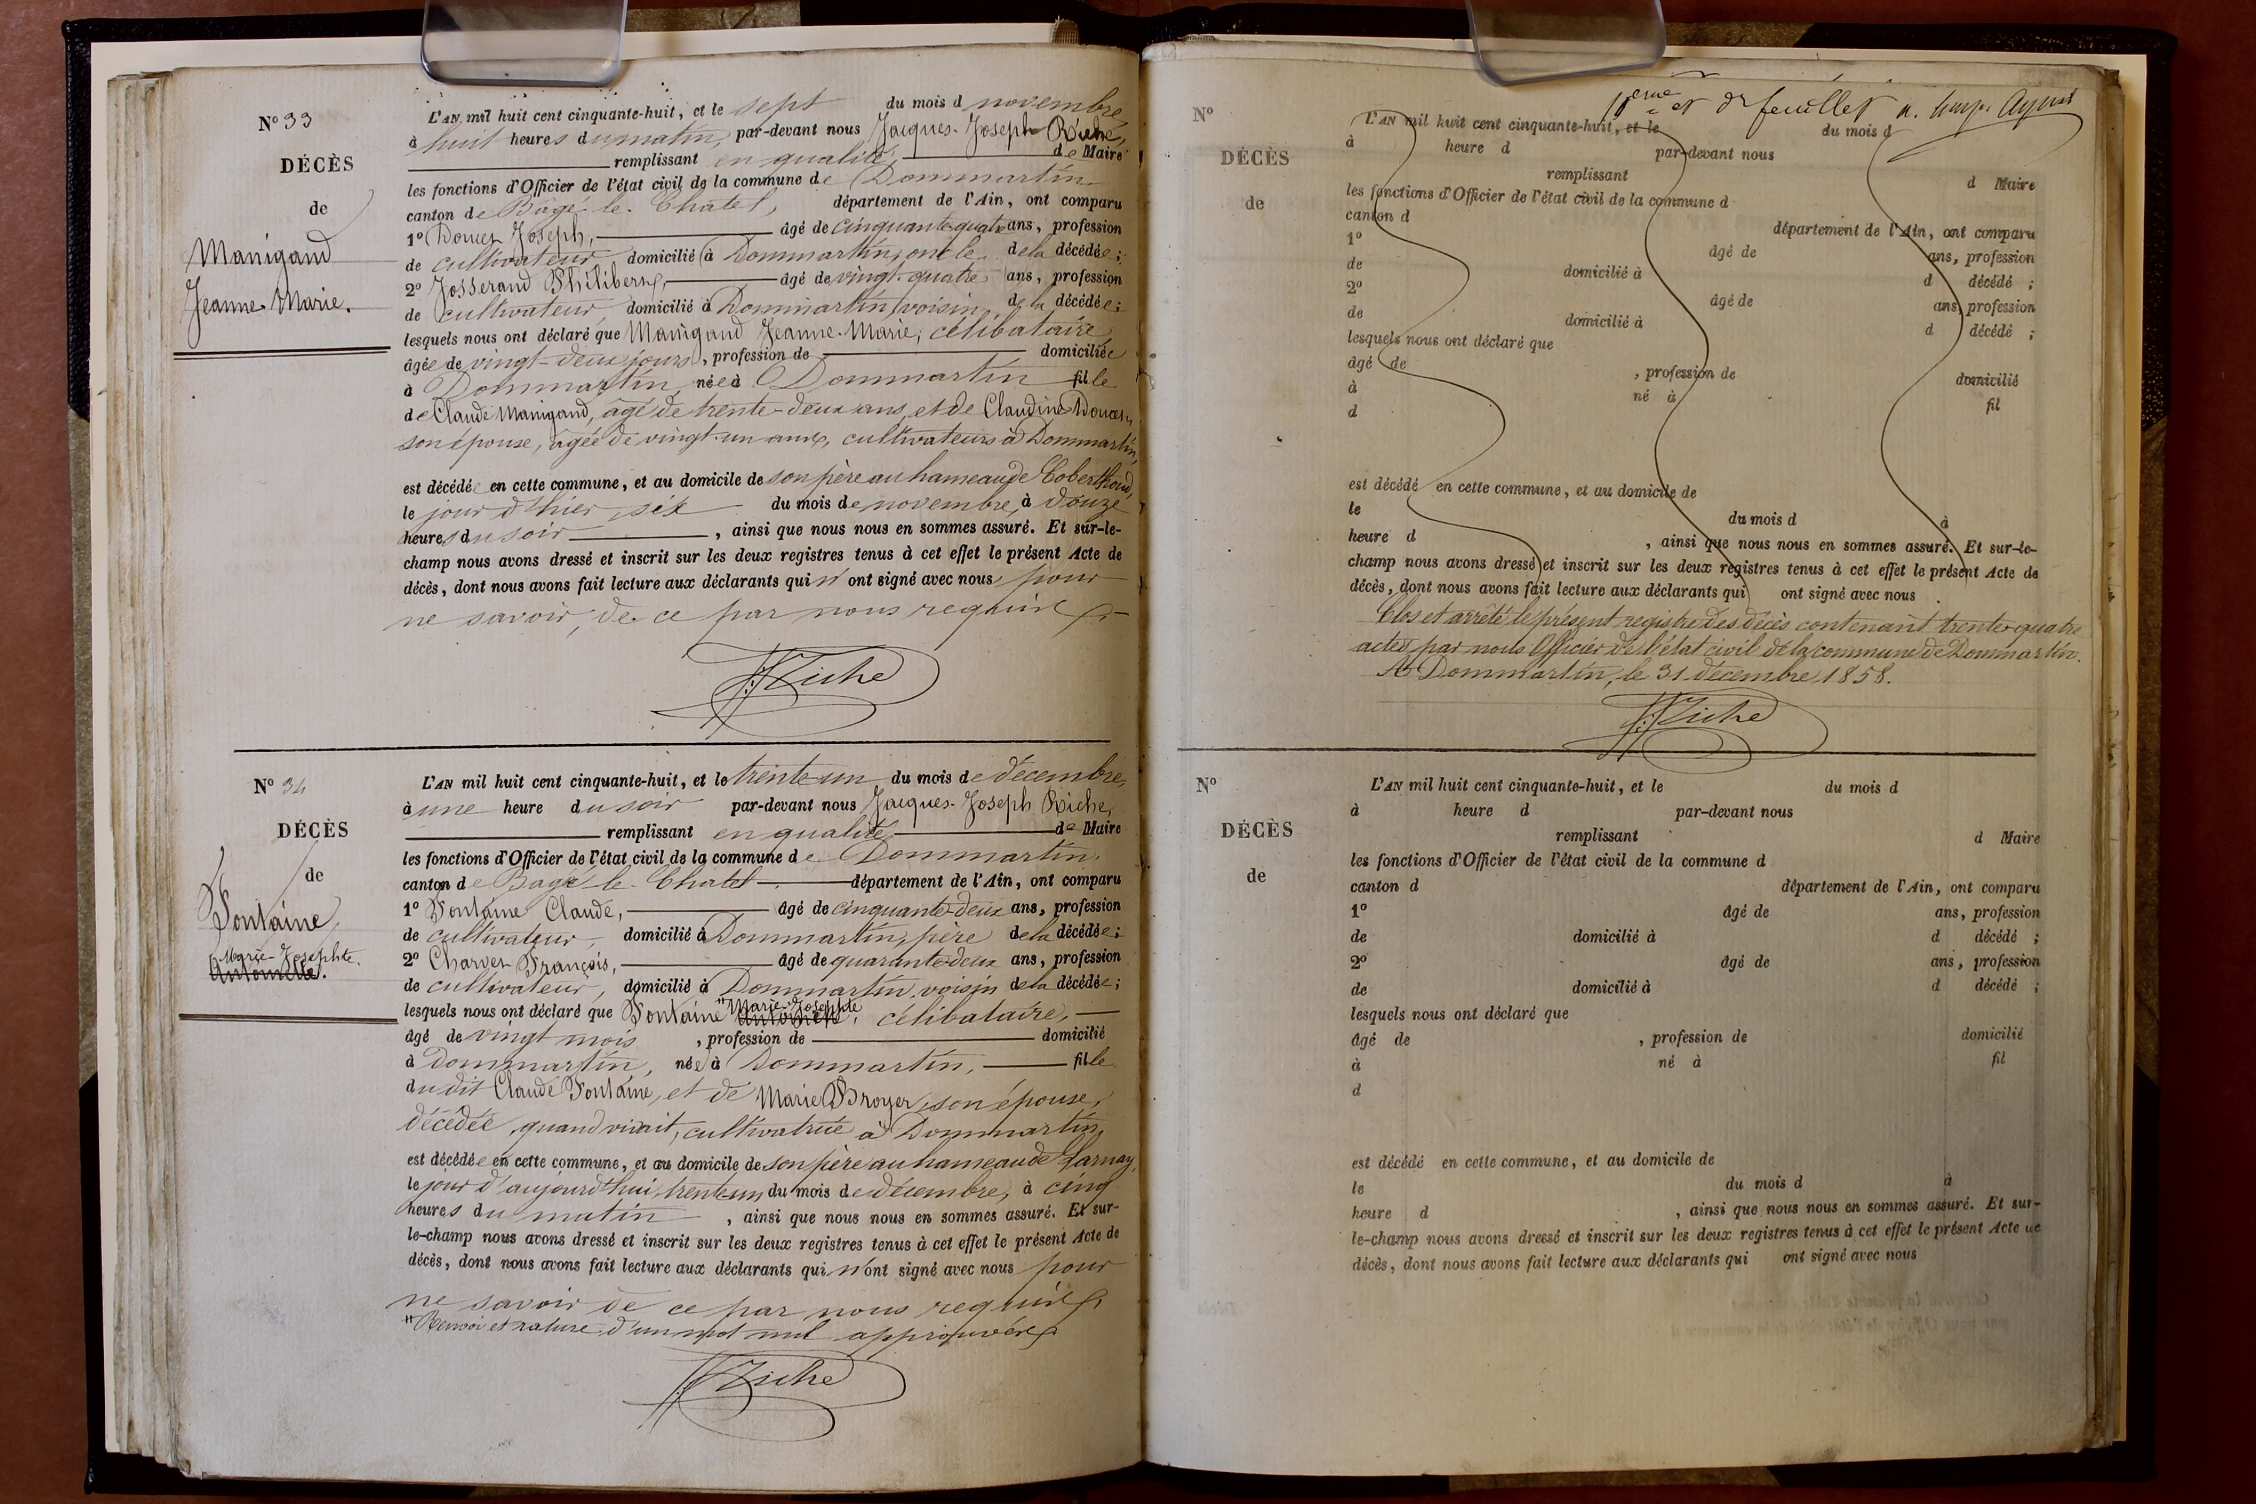 N° 33
DÉCÈS
de
Manigand
Jeanne-Marie.
L'AN mil huit cent cinquante-huit, et le sept du mois d novembre,
à huit heures du matin, par-devant nous Jacques-Joseph Riche,
remplissant en qualité de Maire
les fonctions d'Officier de l'état civil de la commune de Dommartin
canton de Bâgé-le-Châtel, département de l'Ain, ont comparu
1° Doucet Joseph, âgé de cinquante-quatre ans, profession
de cultivateur, domicilié à Dommartin, oncle de la décédée;
2° Josserand Philibert, âgé de vingt-quatre ans, profession
de cultivateur, domicilié à Dommartin, voisin de la décédée;
lesquels nous ont déclaré que Manigand Jeanne-Marie, célibataire,
âgée de vingt-deux jours, profession de domiciliée
à Dommartin, née à Dommartin fille
de Claude Manigand, âgé de trente-deux ans, et de Claudine Doucet,
son épouse, âgée de vingt-un ans, cultivateurs à Dommartin,
est décédée en cette commune, et au domicile de son père au hameau de
le jour d'hier, six du mois de novembre, à douze
heures du soir, ainsi que nous nous en sommes assuré. Et sur-le-
champ nous avons dressé et inscrit sur les deux registres tenus à cet effet le présent Acte de
décès, dont nous avons fait lecture aux déclarants qui n'ont signé avec nous, pour
ne savoir, de ce par nous requis
J. J. Riche
N° 34
DÉCÈS
de
Fontaine
Marie-Josephte.
Antoinette.
L'AN mil huit cent cinquante-huit, et le trente-un du mois de décembre,
à une heure du soir par-devant nous Jacques-Joseph Riche,
remplissant en qualité de Maire
les fonctions d'Officier de l'état civil de la commune de Dommartin,
canton de Bâgé-le-Châtel département de l'Ain, ont comparu
1° Fontaine Claude, âgé de cinquante-deux ans, profession
de cultivateur, domicilié à Dommartin, père de la décédée;
2° Charvet François, âgé de quarante-deux ans, profession
de cultivateur, domicilié à Dommartin, voisin de la décédée;
lesquels nous ont déclaré que Fontaine "Marie-Josephte Antoinette, célibataire,
âgé de vingt mois, profession de domicilié
à Dommartin, née à Dommartin, fille
du dit Claude Fontaine, et de Marie Broyer, son épouse,
décédée, quand vivait, cultivatrice à Dommartin,
est décédée en cette commune, et au domicile de son père au hameau de
le jour d'aujourd'hui, trente-un du mois de décembre, à cinq
heures du matin, ainsi que nous nous en sommes assuré. Et sur-
le-champ nous avons dressé et inscrit sur les deux registres tenus à cet effet le présent Acte de
décès, dont nous avons fait lecture aux déclarants qui n'ont signé avec nous pour
ne savoir de ce par nous requis
"Renvoi et rature d'un mot nul approuvés
J. J. Riche
feuillet
N°
DÉCÈS
de
L'AN mil huit cent cinquante-huit, et le du mois d
à heure d par-devant nous
remplissant d Maire
les fonctions d'Officier de l'état civil de la commune d
canton d département de l'Ain, ont comparu
1° âgé de ans, profession
de domicilié à d décédé ;
2° âgé de ans, profession
de domicilié à d décédé ;
lesquels nous ont déclaré que
âgé de , profession de domicilié
à né à fil
d
est décédé en cette commune, et au domicile de
le du mois d à
heure d , ainsi que nous nous en sommes assuré. Et sur-le-
champ nous avons dressé et inscrit sur les deux registres tenus à cet effet le présent Acte de
décès, dont nous avons fait lecture aux déclarants qui ont signé avec nous
Clos et arrêté le présent registre des décès contenant trente-quatre
actes par nous Officier de l'état civil de la commune de Dommartin.
A Dommartin, le 31 décembre 1858.
J. J. Riche
N°
DÉCÈS
de
L'AN mil huit cent cinquante-huit, et le du mois d
à heure d par-devant nous
remplissant d Maire
les fonctions d'Officier de l'état civil de la commune d
canton d département de l'Ain, ont comparu
1° âgé de ans, profession
de domicilié à d décédé ;
2° âgé de ans, profession
de domicilié à d décédé ;
lesquels nous ont déclaré que
âgé de , profession de domicilié
à né à fil
d
est décédé en cette commune, et au domicile de
le du mois d à
heure d , ainsi que nous nous en sommes assuré. Et sur-
le-champ nous avons dressé et inscrit sur les deux registres tenus à cet effet le présent Acte de
décès, dont nous avons fait lecture aux déclarants qui ont signé avec nous